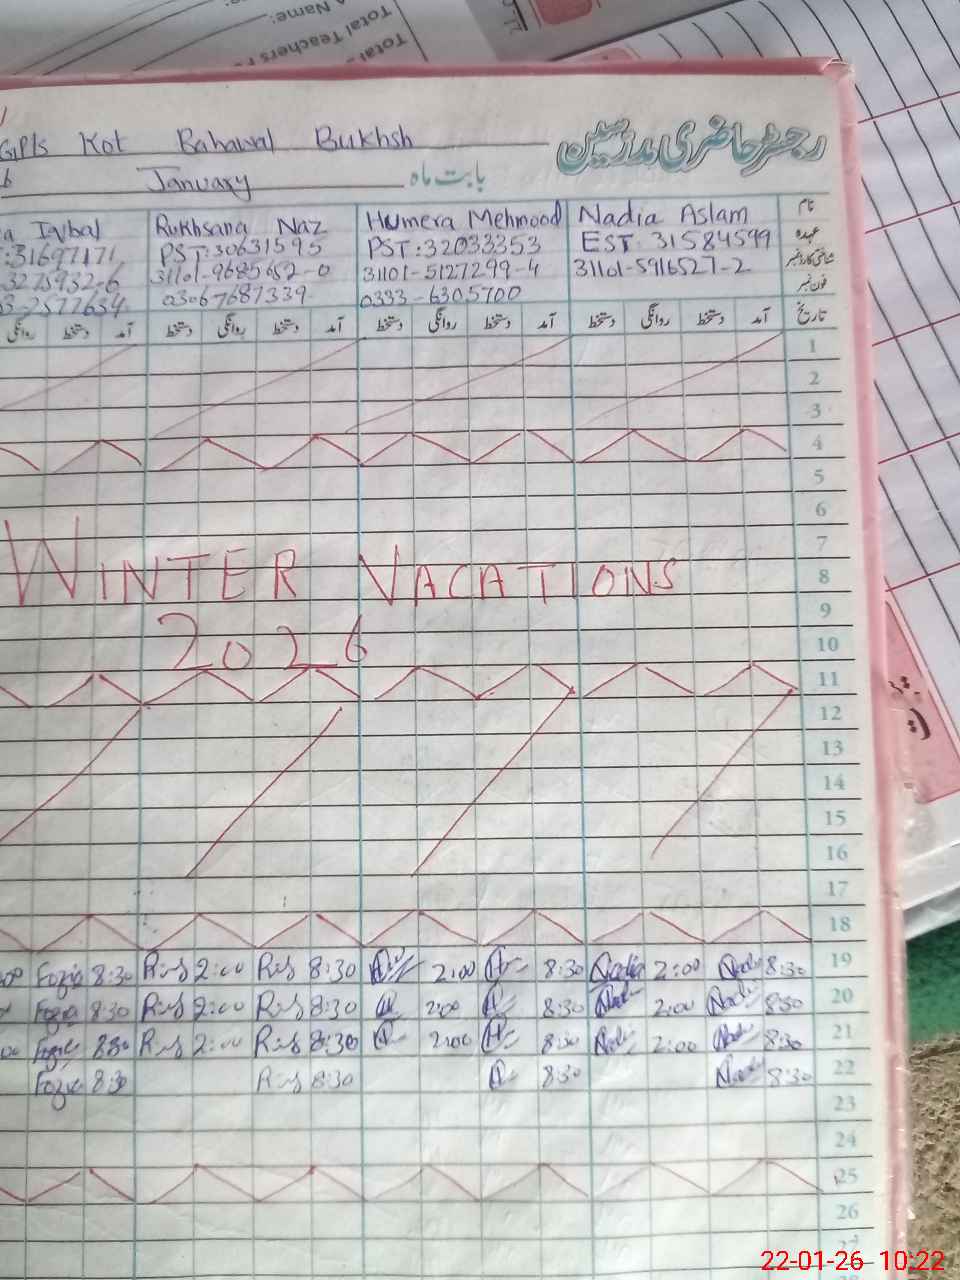 Total Teachers
Name:
Total
رجسٹر حاضری مدرسین
Kot Bahawal Bukhsh
January بابت ماہ
Iqbal Rukhsana Naz Humera Mehmood Nadia Aslam نام
:31697171 PST:30631595 PST:32033353 EST:31584599 عہدہ
31101-9685652-0 31101-5127299-4 31101-5916527-2 شناختی کارڈ نمبر
03067687339 0333-6305700 فون نمبر
روانگی دستخط آمد دستخط روانگی دستخط آمد دستخط روانگی دستخط آمد دستخط روانگی دستخط آمد تاریخ
1
2
3
4
5
6
7
WINTER VACATIONS 8
9
2026 10
11
12
13
14
15
16
17
18
Fozia 8:30 2:00 8:30 2:00 8:30 Nadia 2:00 8:30 19
Fozia 8:30 2:00 8:30 2:00 8:30 2:00 8:30 20
8:30 2:00 8:30 2:00 8:30 2:00 8:30 21
8:30 8:30 8:30 8:30 22
23
24
25
26
27
22-01-26 10:22